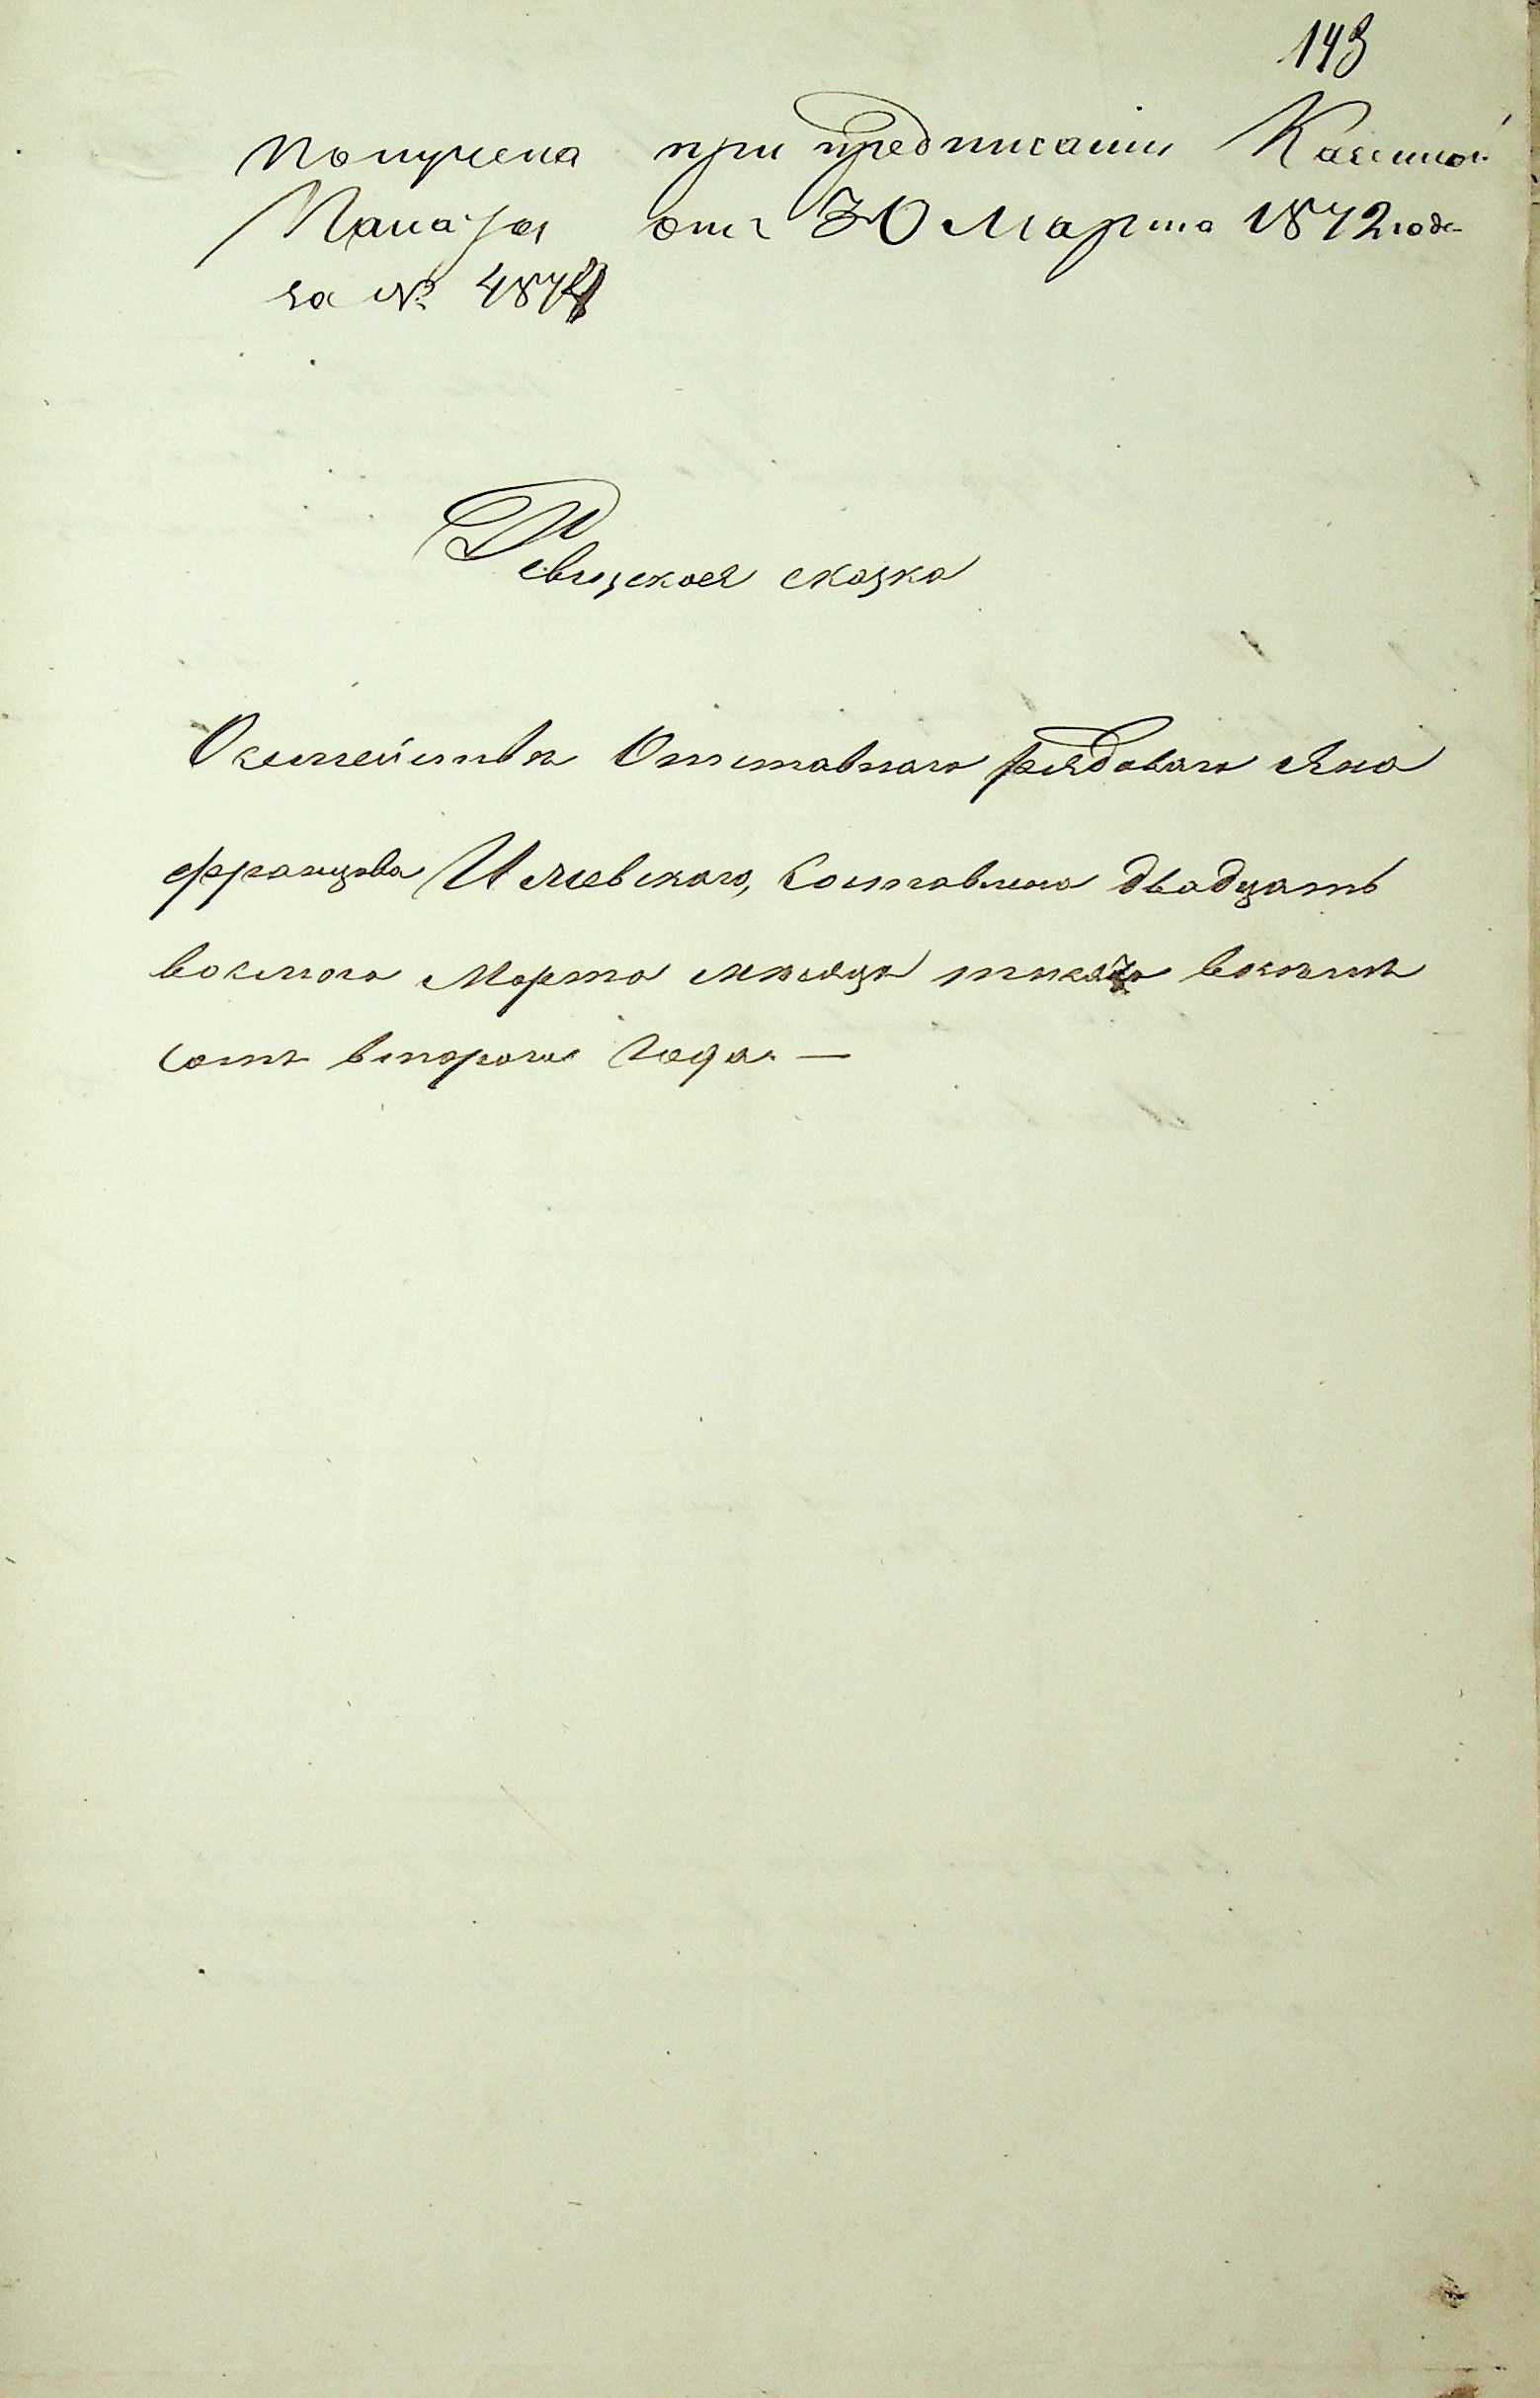 143
Получена при предписании Казенной
Палаты от 30 Марта 1872 года
за № 487
Ревизская сказка
О семействѣ Отставнаго рядоваго Яна
Францова составлена двадцать
восмого Марта мѣсяца тысяча восемь
сотъ второго года. —